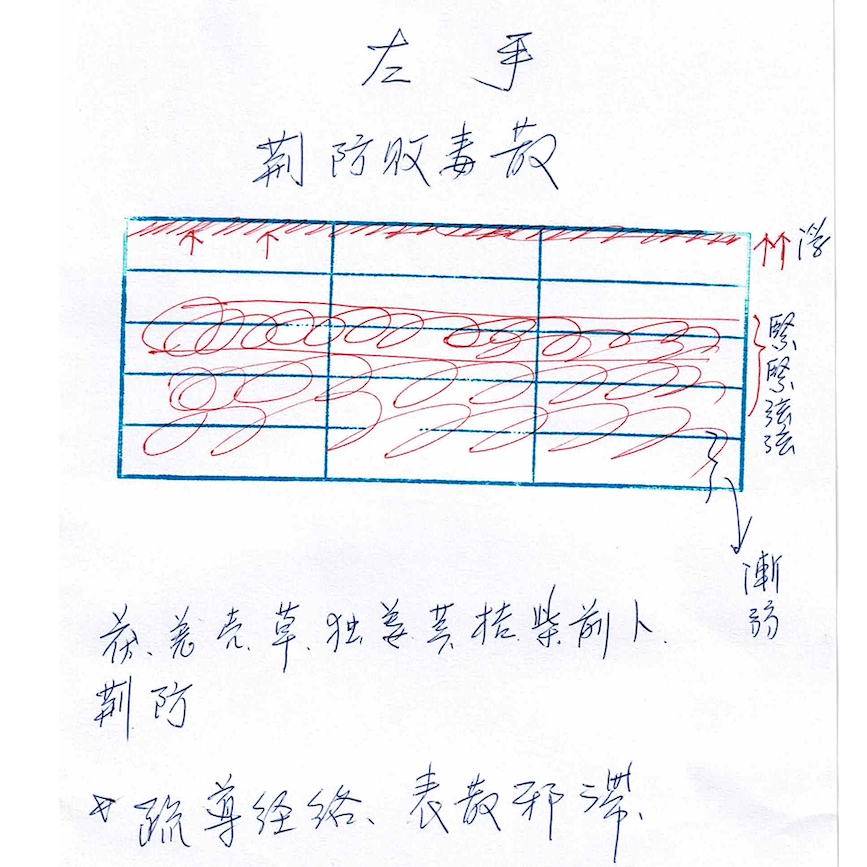 左 手
荆防败毒散
浮
緊
緊
弦
弦
漸
弱
茯、羌壳草、独姜芎桔柴前卜.
荆防
疏導经络、表散邪滯.